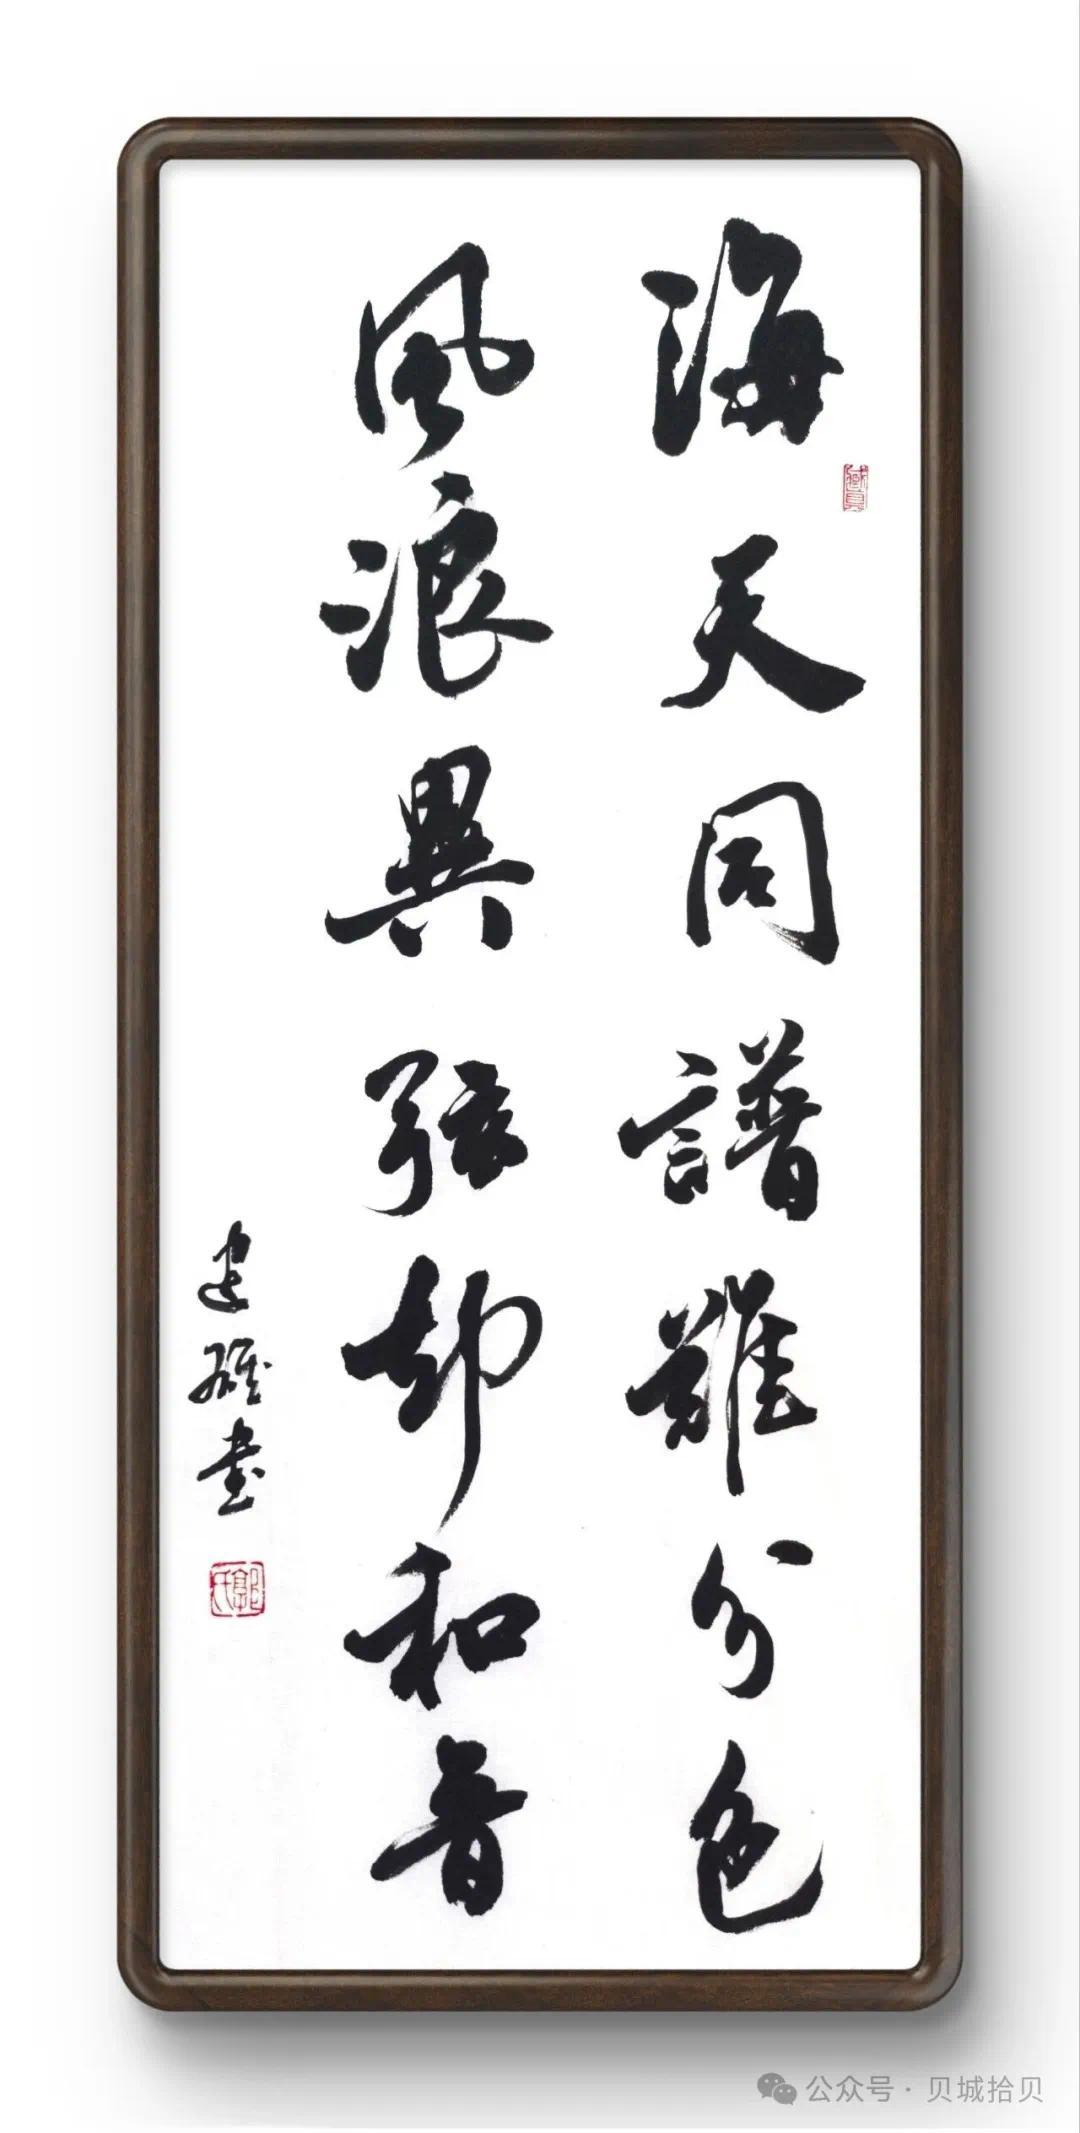 海天同譜難分色
風浪異弦却和音
建雄書
郭氏
公众号·贝城拾贝